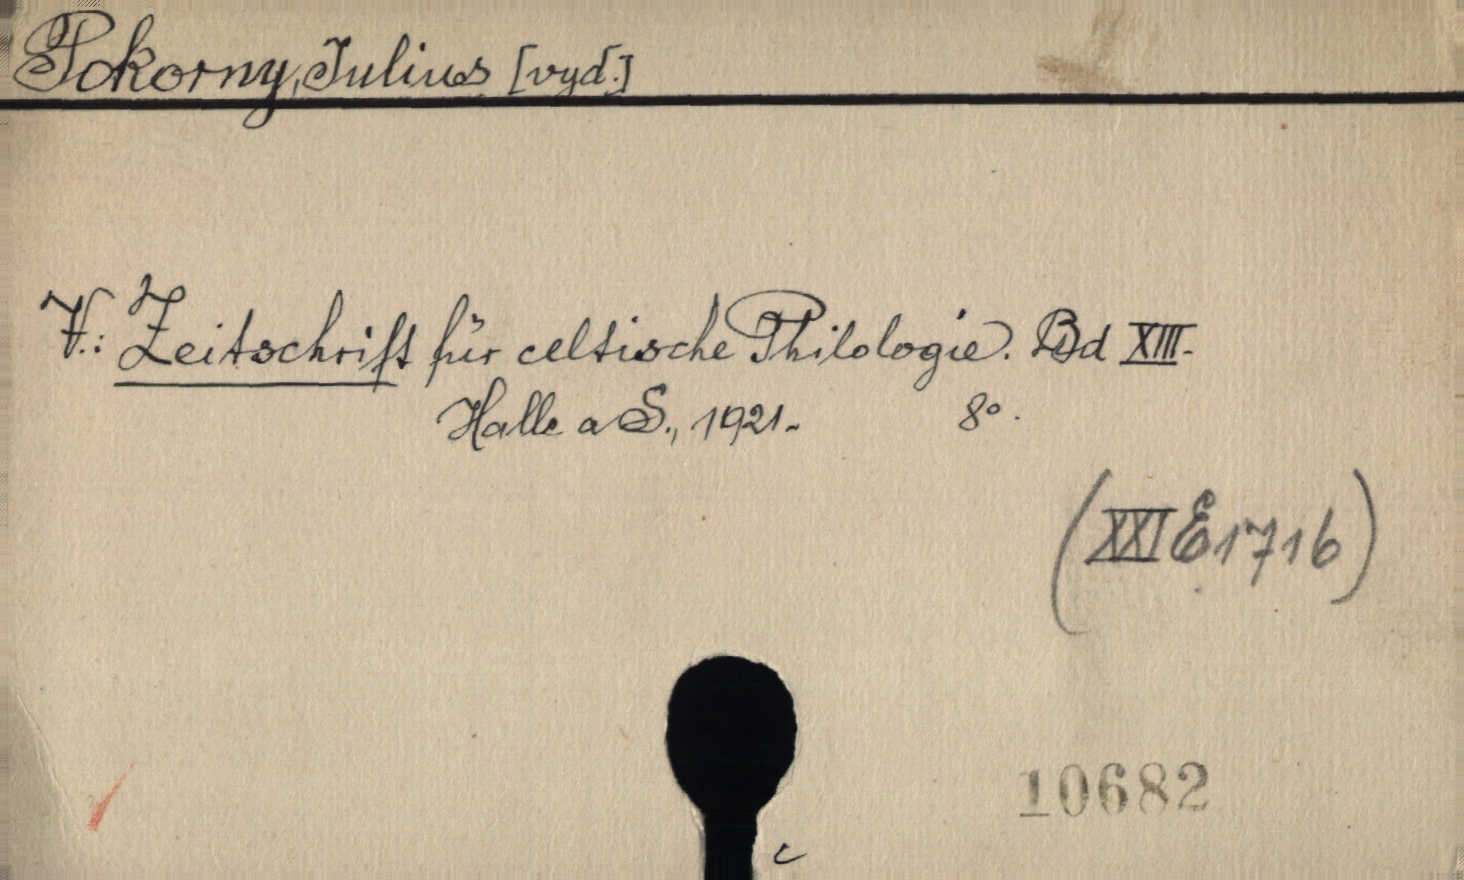 Pokorny, Julius [vyd.]
V.: Zeitschrift für celtische Philologie. Bd XIII.
Halle a S., 1921. 8°.
(XXI E 1716)
10682
c